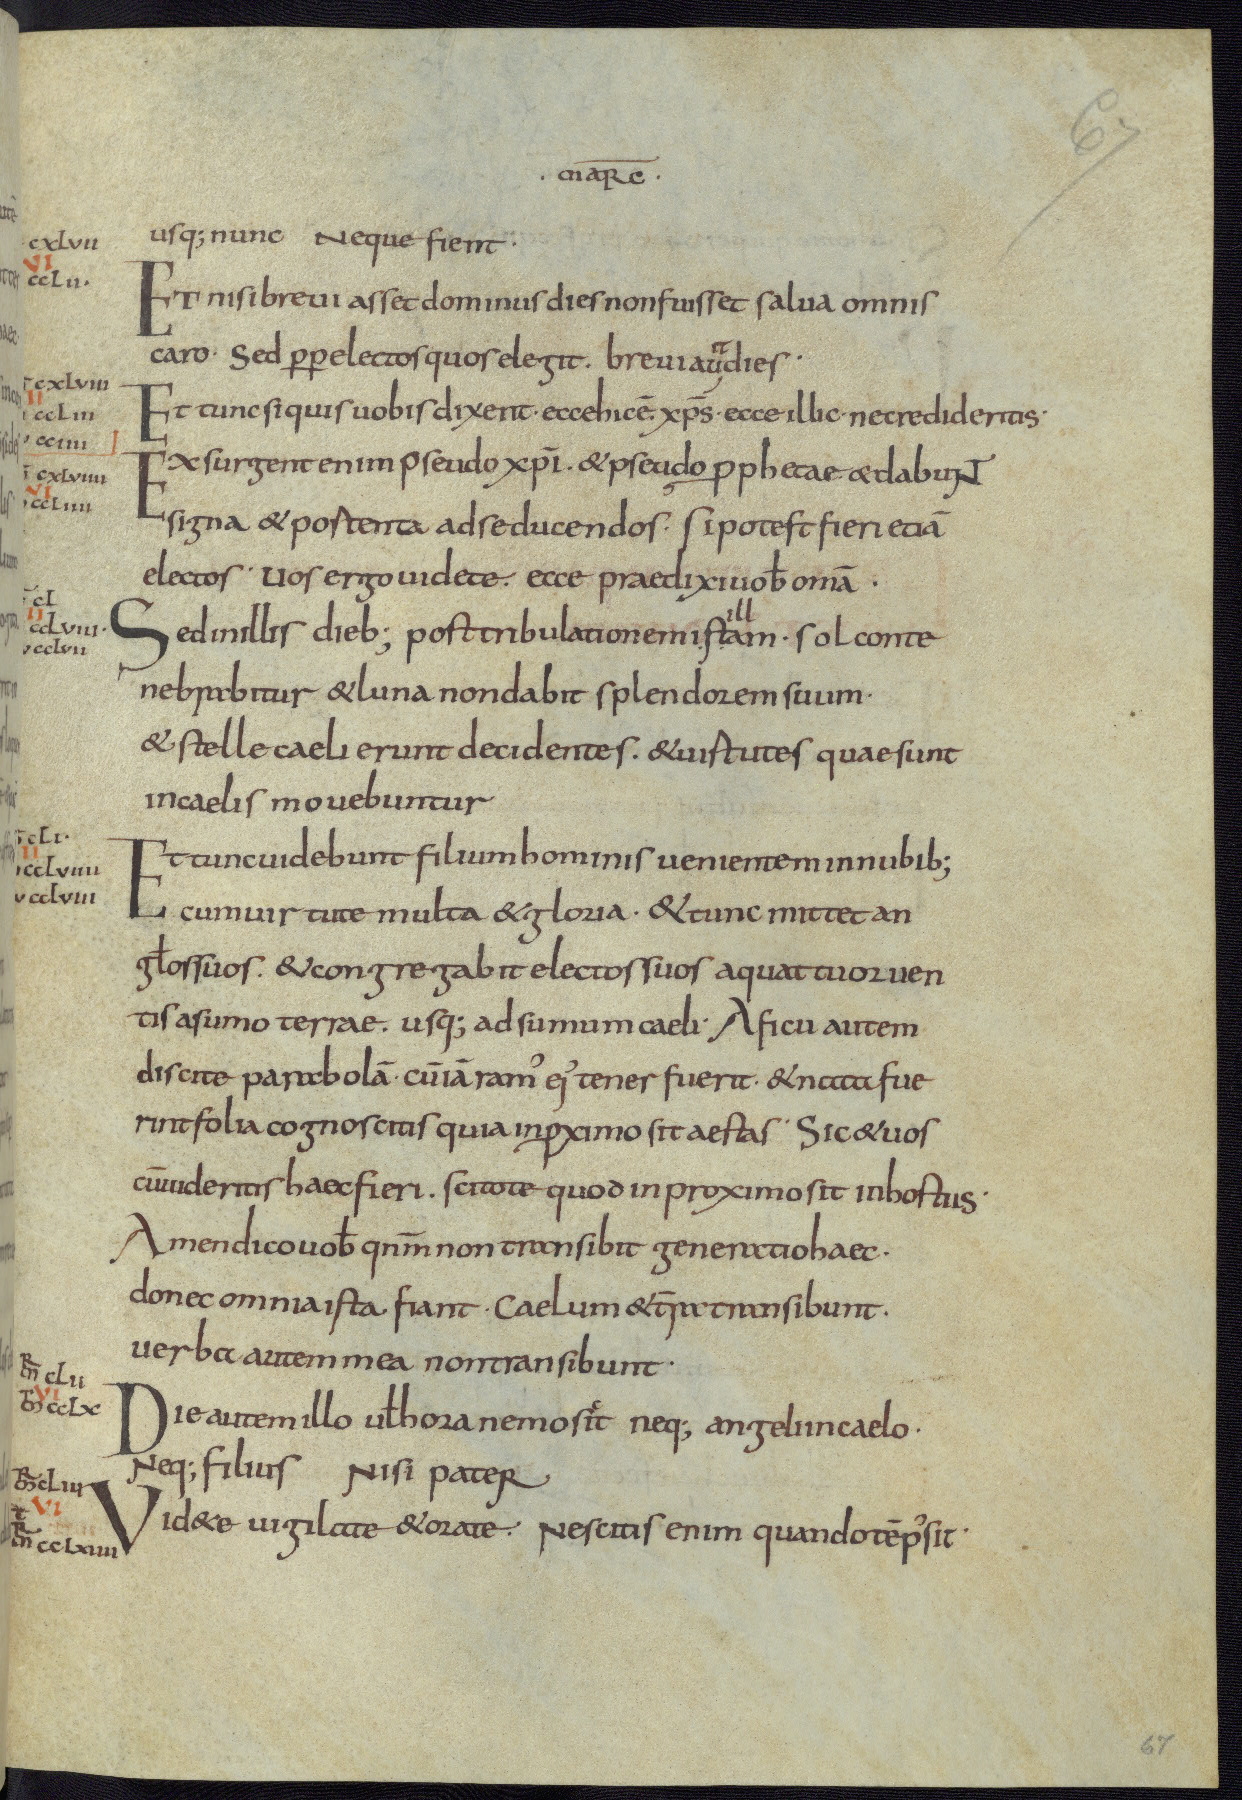 67
· MARC̄ ·
usq; nunc Neque fient·
cxlvii
VI
cclii·
Et nisi breuiasset dominus dies non fuisset salua omnis
caro· Sed pp electos quos elegit. breuiauit dies·
cxlviii
II
ccliii
cciiii
Et tunc si quis uobis dixerit· ecce hic ē· xp̄s· ecce illic· ne credideritis·
Exsurgent enim pseudo xp̄i· & pseudo pphetae & dabunt
cxlviiii
VI
ccliiii
signa & postenta ad seducendos· Si potest fieri etiā
electos· Uos ergo uidete. ecce praedixi uob̄ omā·
cl
II
cclviii·
cclvii
ill
Sed in illis dieb; post tribulationem istam· sol conte
nebrabitur & luna non dabit splendorem suum·
& stelle caeli erunt decidentes. & uistutes quae sunt
in caelis mouebuntur
cli·
II
cclviiii
cclviii
Et tunc uidebunt filium hominis uenientem in nubib;
cum uirtute multa & gloria· & tunc mittet an
gl̄os suos. & congregabit electos suos a quattuor uen
tis a sumo terrae. usq; ad sumum caeli· A ficu autem
discite parabolā· cū iā ram᾽ ei᾽ tener fuerit· & nata fue
rint folia cognoscitis quia in pximo sit aestas· Sic & uos
cū uideritis haec fieri. scitote quod in proximo sit in hostius·
Amen dico uob̄ qnm̄ non transibit generatio haec·
donec omnia ista fiant· Caelum & t̄rra transibunt·
uerba autem mea non transibunt·
clii
VI
cclx
Die autem illo ul̄ hora nemo scit neq; angeli in caelo·
Neq; filius Nisi pater
cliii
VI
cclxiiii
Vid&e uigilate & orate· Nescitis enim quando tēp᾽ sit·
67